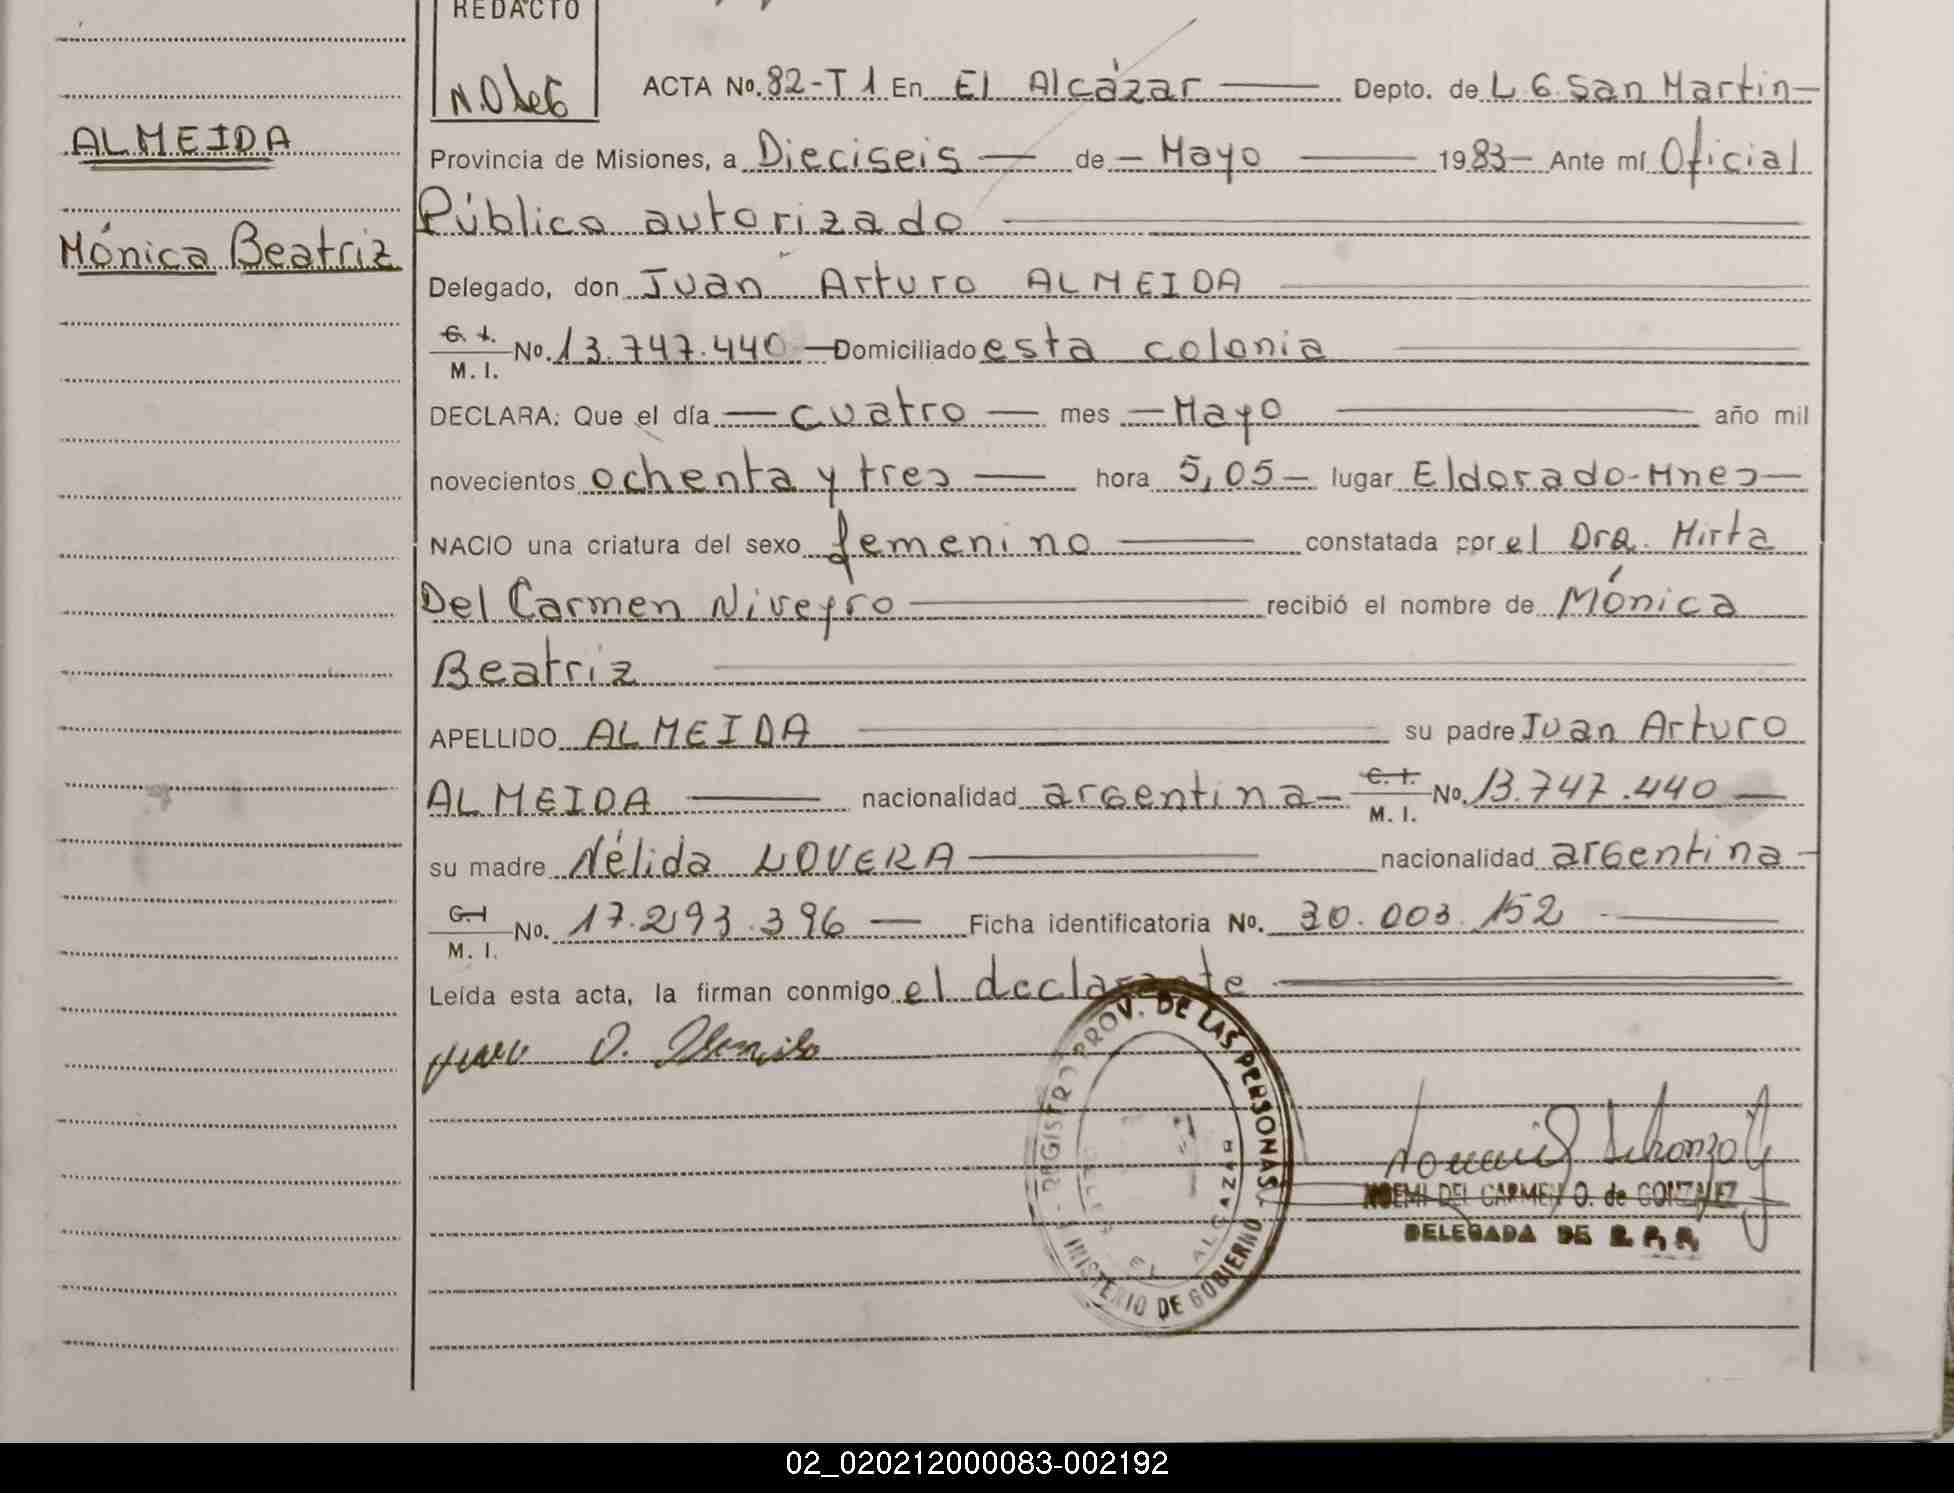 REDACTO
N.O de G
ALMEIDA
Mónica Beatriz
ACTA No. 82-T 1 En El Alcázar Depto. de L G. San Martin
Provincia de Misiones, a Dieciseis de Mayo 1983 Ante mí Oficial
Público autorizado
Delegado, don Juan Arturo ALMEIDA
C. I. M. I. No. 13.747.440 Domiciliado esta colonia
DECLARA: Que el día cuatro mes Mayo año mil
novecientos ochenta y tres hora 5,05 lugar Eldorado-Mnes
NACIO una criatura del sexo femenino constatada por el Dra. Mirta
Del Carmen Niveyro recibió el nombre de Mónica
Beatriz
APELLIDO ALMEIDA su padre Juan Arturo
ALMEIDA nacionalidad argentina C. I. M. I. No. 13.747.440
su madre Nélida LOVERA nacionalidad argentina
C. I M. I. No. 17.293.396 Ficha identificatoria No. 30.003.152
Leída esta acta, la firman conmigo el declarante
REGISTRO PROV. DE LAS PERSONAS
MINISTERIO DE GOBIERNO
EL ALCAZAR
NOEMI DEL CARMEN O. de GONZALEZ
DELEGADA DE R. P. P.
02_020212000083-002192